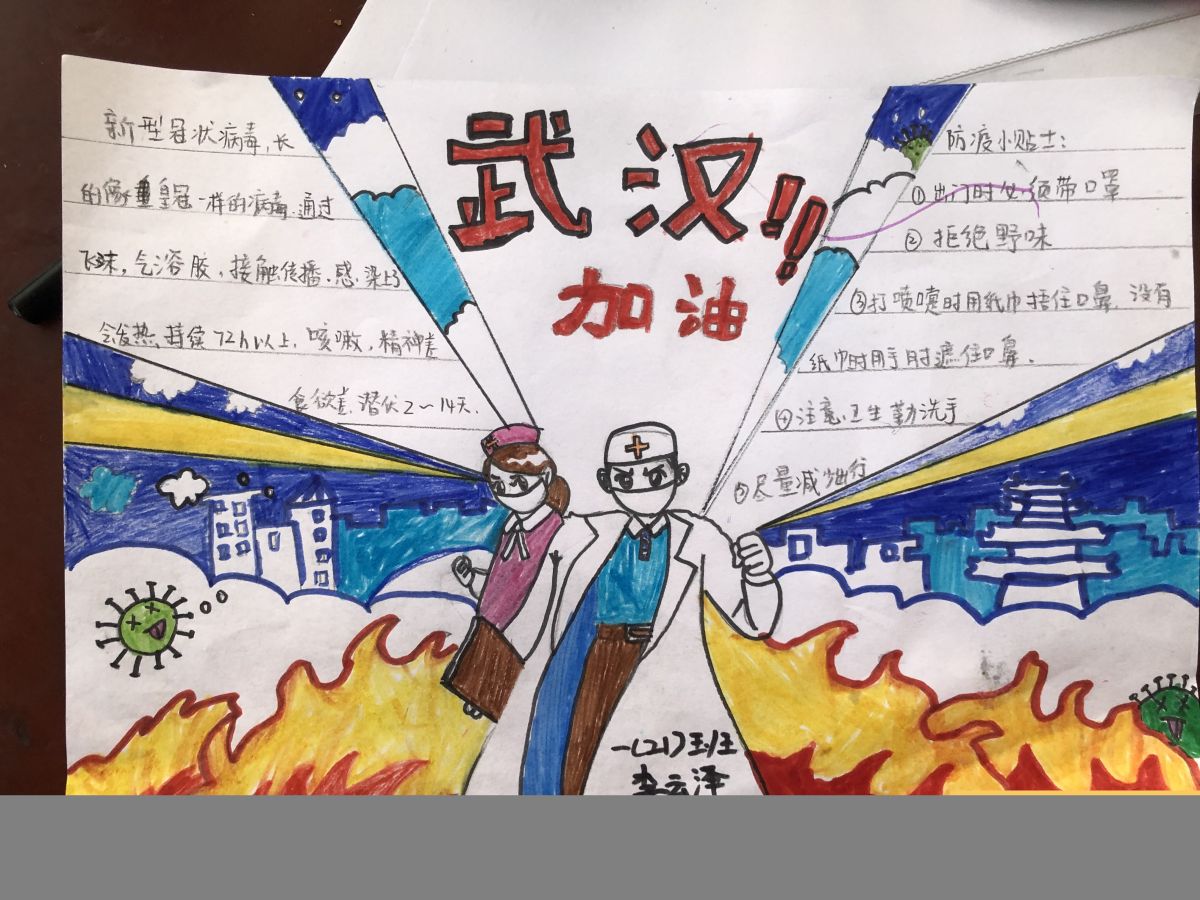 武汉!!
加油
新型冠状病毒,长
的像皇冠一样的病毒.通过
飞沫,气溶胶,接触传播.感染上了
会发热.持续72h以上,咳嗽,精神差
食欲差.潜伏2～14天.
防疫小贴士:
①出门时必须带口罩
②拒绝野味
③打喷嚏时用纸巾捂住口鼻.没有
纸巾时用手肘遮住口鼻.
④注意卫生勤洗手
⑤尽量减少出行
一(21)班
李云泽